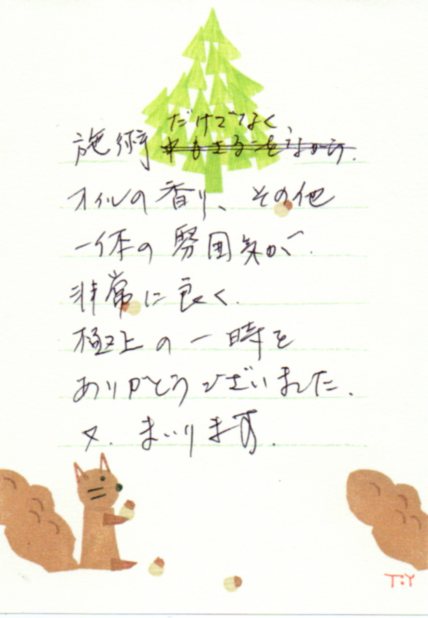 施術だけでなく
オイルの香り、その他
一体の雰囲気が
非常に良く
極上の一時を
ありがとうございました。
又、まいります。
T.Y